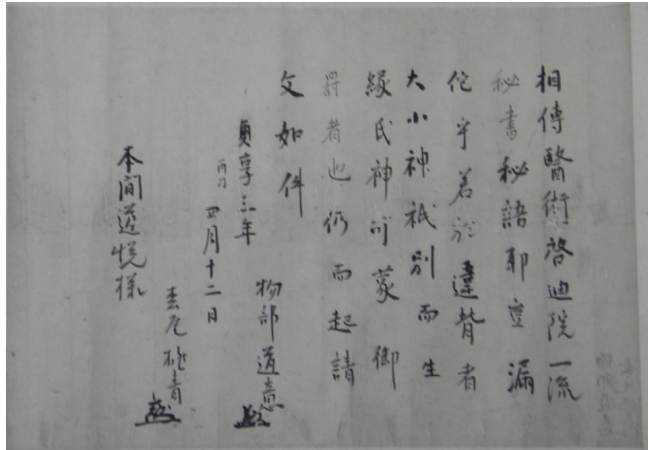 相傳醫術啓迪院一流
秘書秘語耶豈漏
佗乎若於違背者
大小神祇別而生
縁氏神可蒙御
罸者也仍而起請
文如件
貞享三年
丙刀
四月十二日
物部道意
桃青
本間道悦様